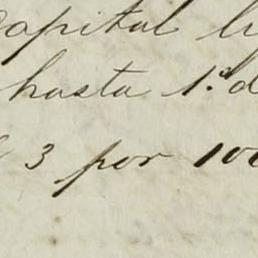 Capital li
hasta 1º d
3 por 100